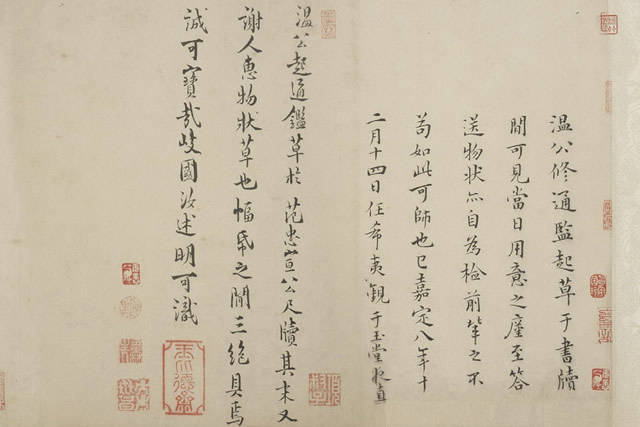 温公修通監起草于書牘
間可見當日用意之廑至答
送物状亦自為檢前輩之不
苟如此可師也已嘉定八年十
二月十四日任希夷觀于玉堂夜直
温公起通鑑草於范忠宣公尺牘其末又
謝人惠物状草也幅帋之間三絶具焉
誠可寶哉岐國汝述明可識